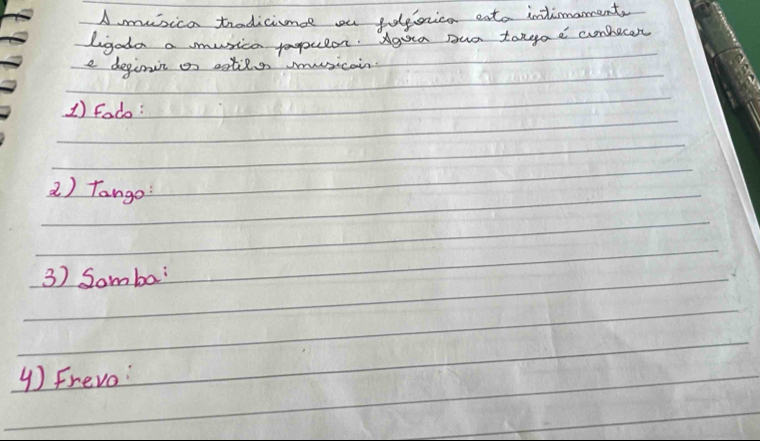 A música tradicional ou folclórica está intimamente
ligada a música popular. Agora sua tarefa é conhecer
e definir os estilos musicais:
1) Fado:
2) Tango:
3) Samba:
4) Frevo: